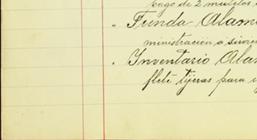 pago de 2 muletos
" Funda Alam
ministración o sirvien
" Inventario Alam
flete tijeras para